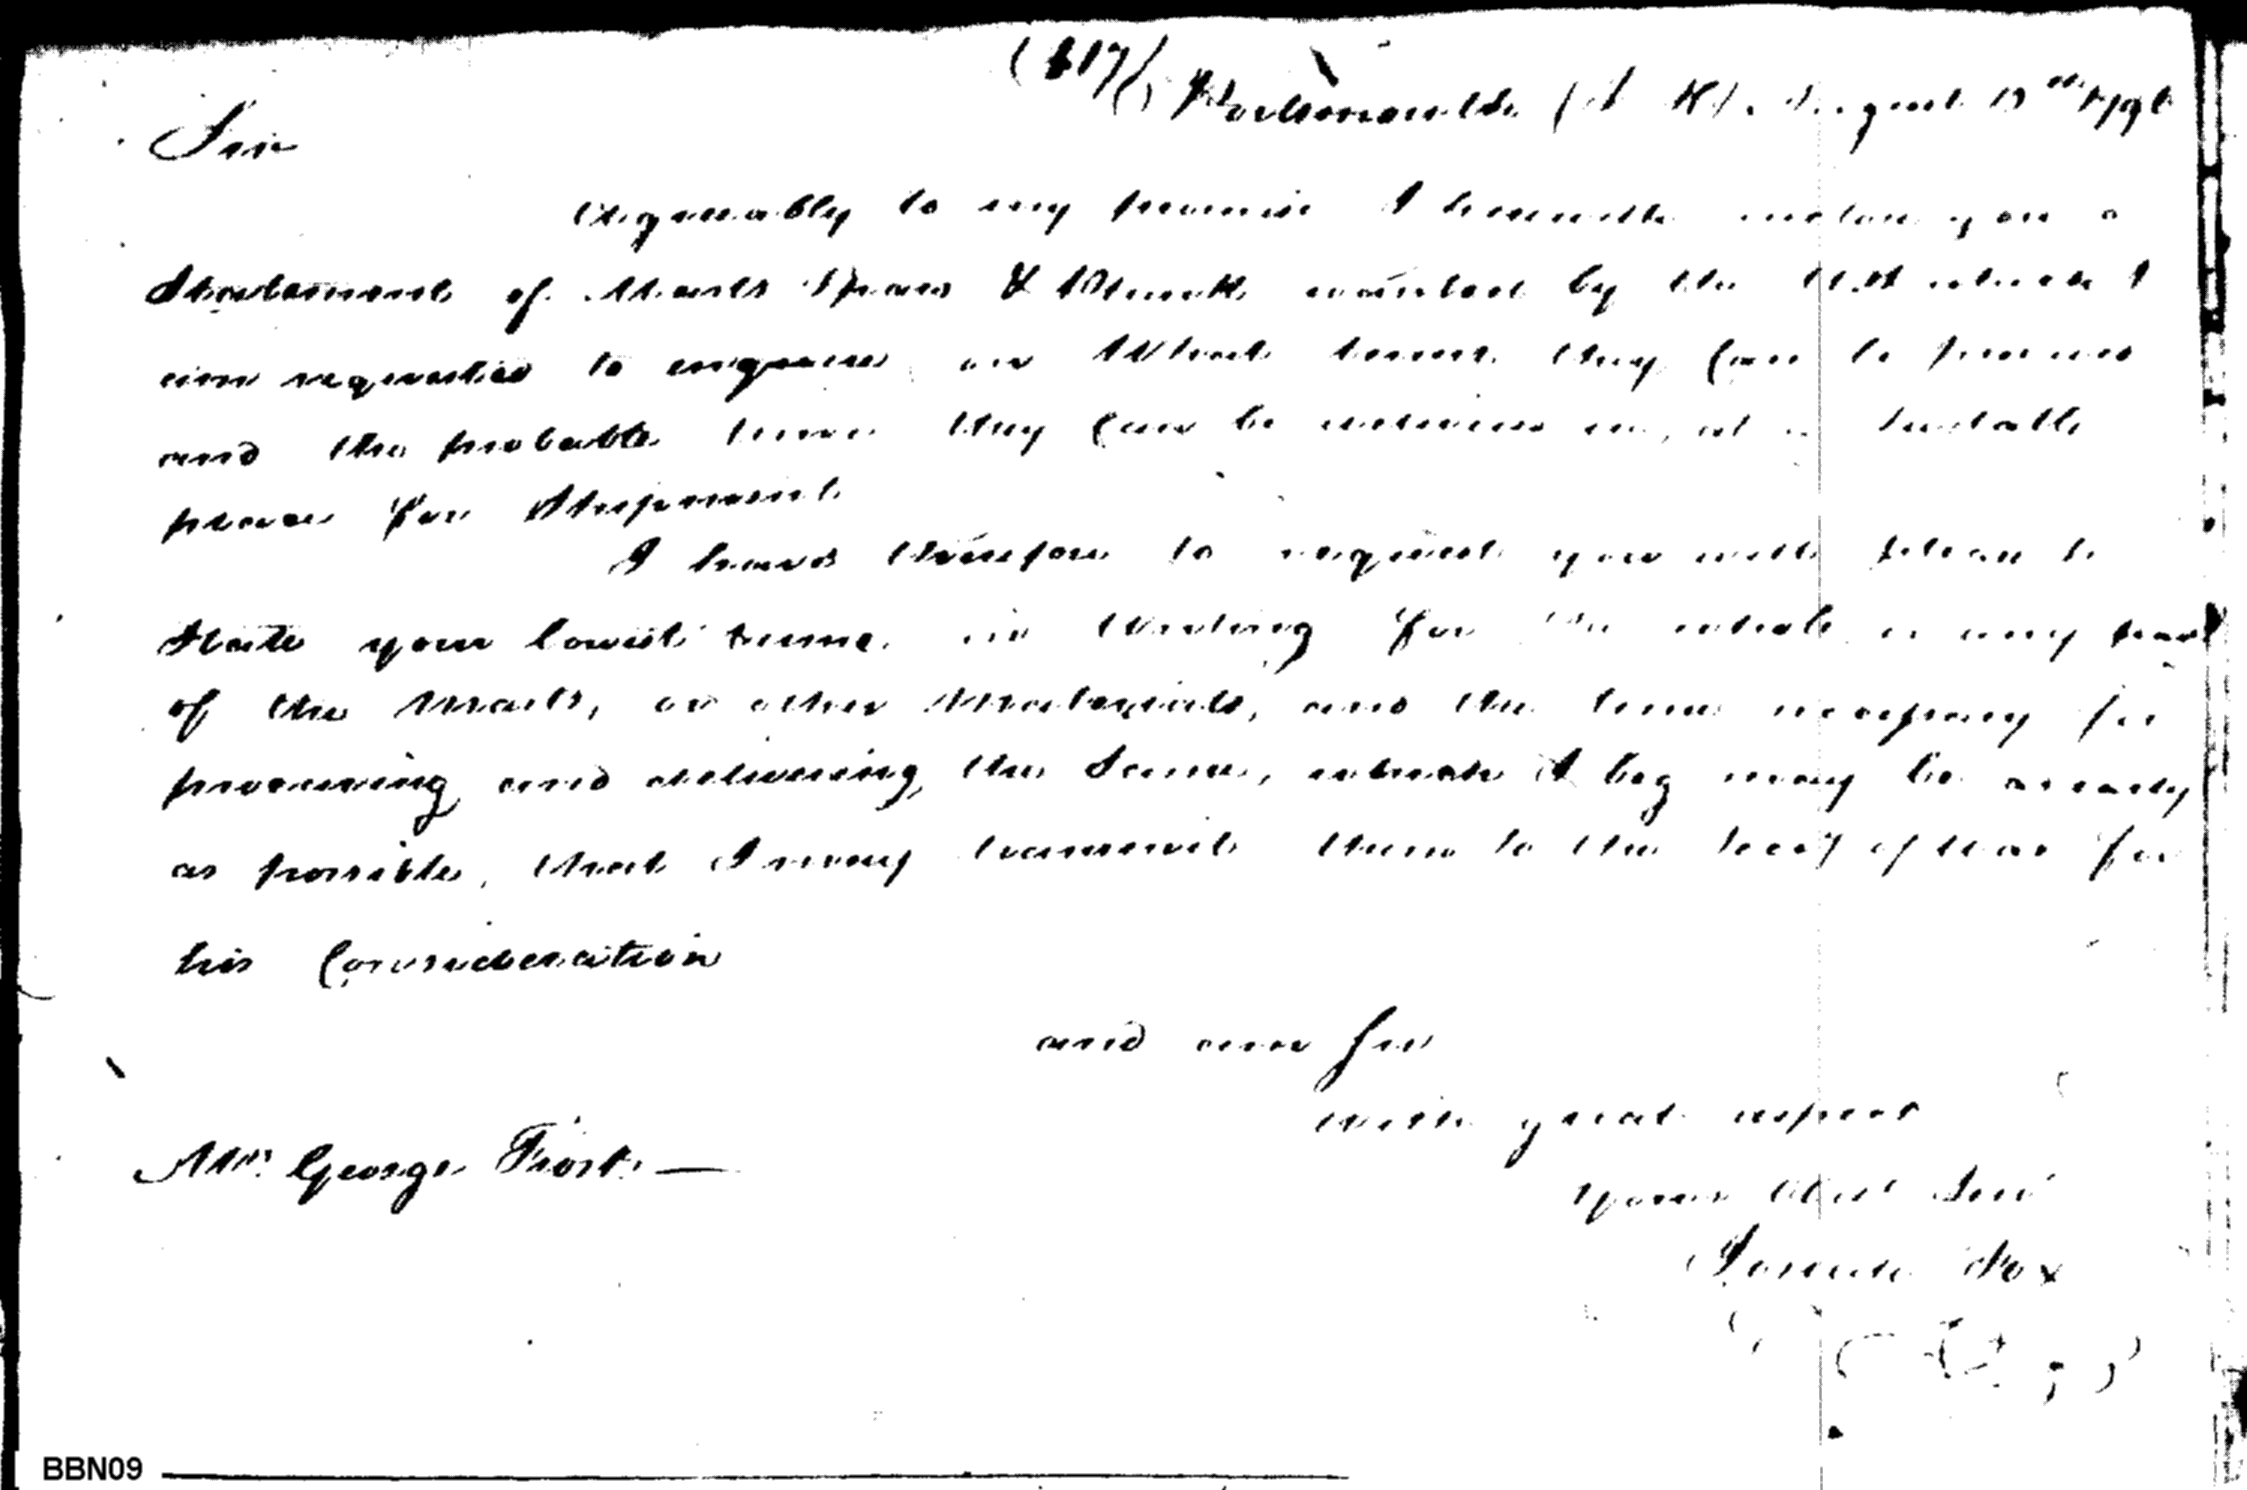 (417)
Portsmouth (N H). August 19th 1796
Sir
Agreeably to my promise I herewith inclose you a
Statement of Masts Spars & Plank wanted by the U.S which I
am requested to enquire on What terms they Can be procured
and the probable time they Can be delivered in, at a Suitable
place for Shipment
I have therefore to request you will please to
State your lowest terms in Writing for the whole or any part
of the Masts, or other Materials, and the time necessary for
procuring and delivering the Same, which I beg may be as early
as possible, that I may transmit them to the Secy of War for
his Consideration
and am Sir
with great respect
your Obedt Serv
Mr. George Frost —
Josiah Fox
BBN09